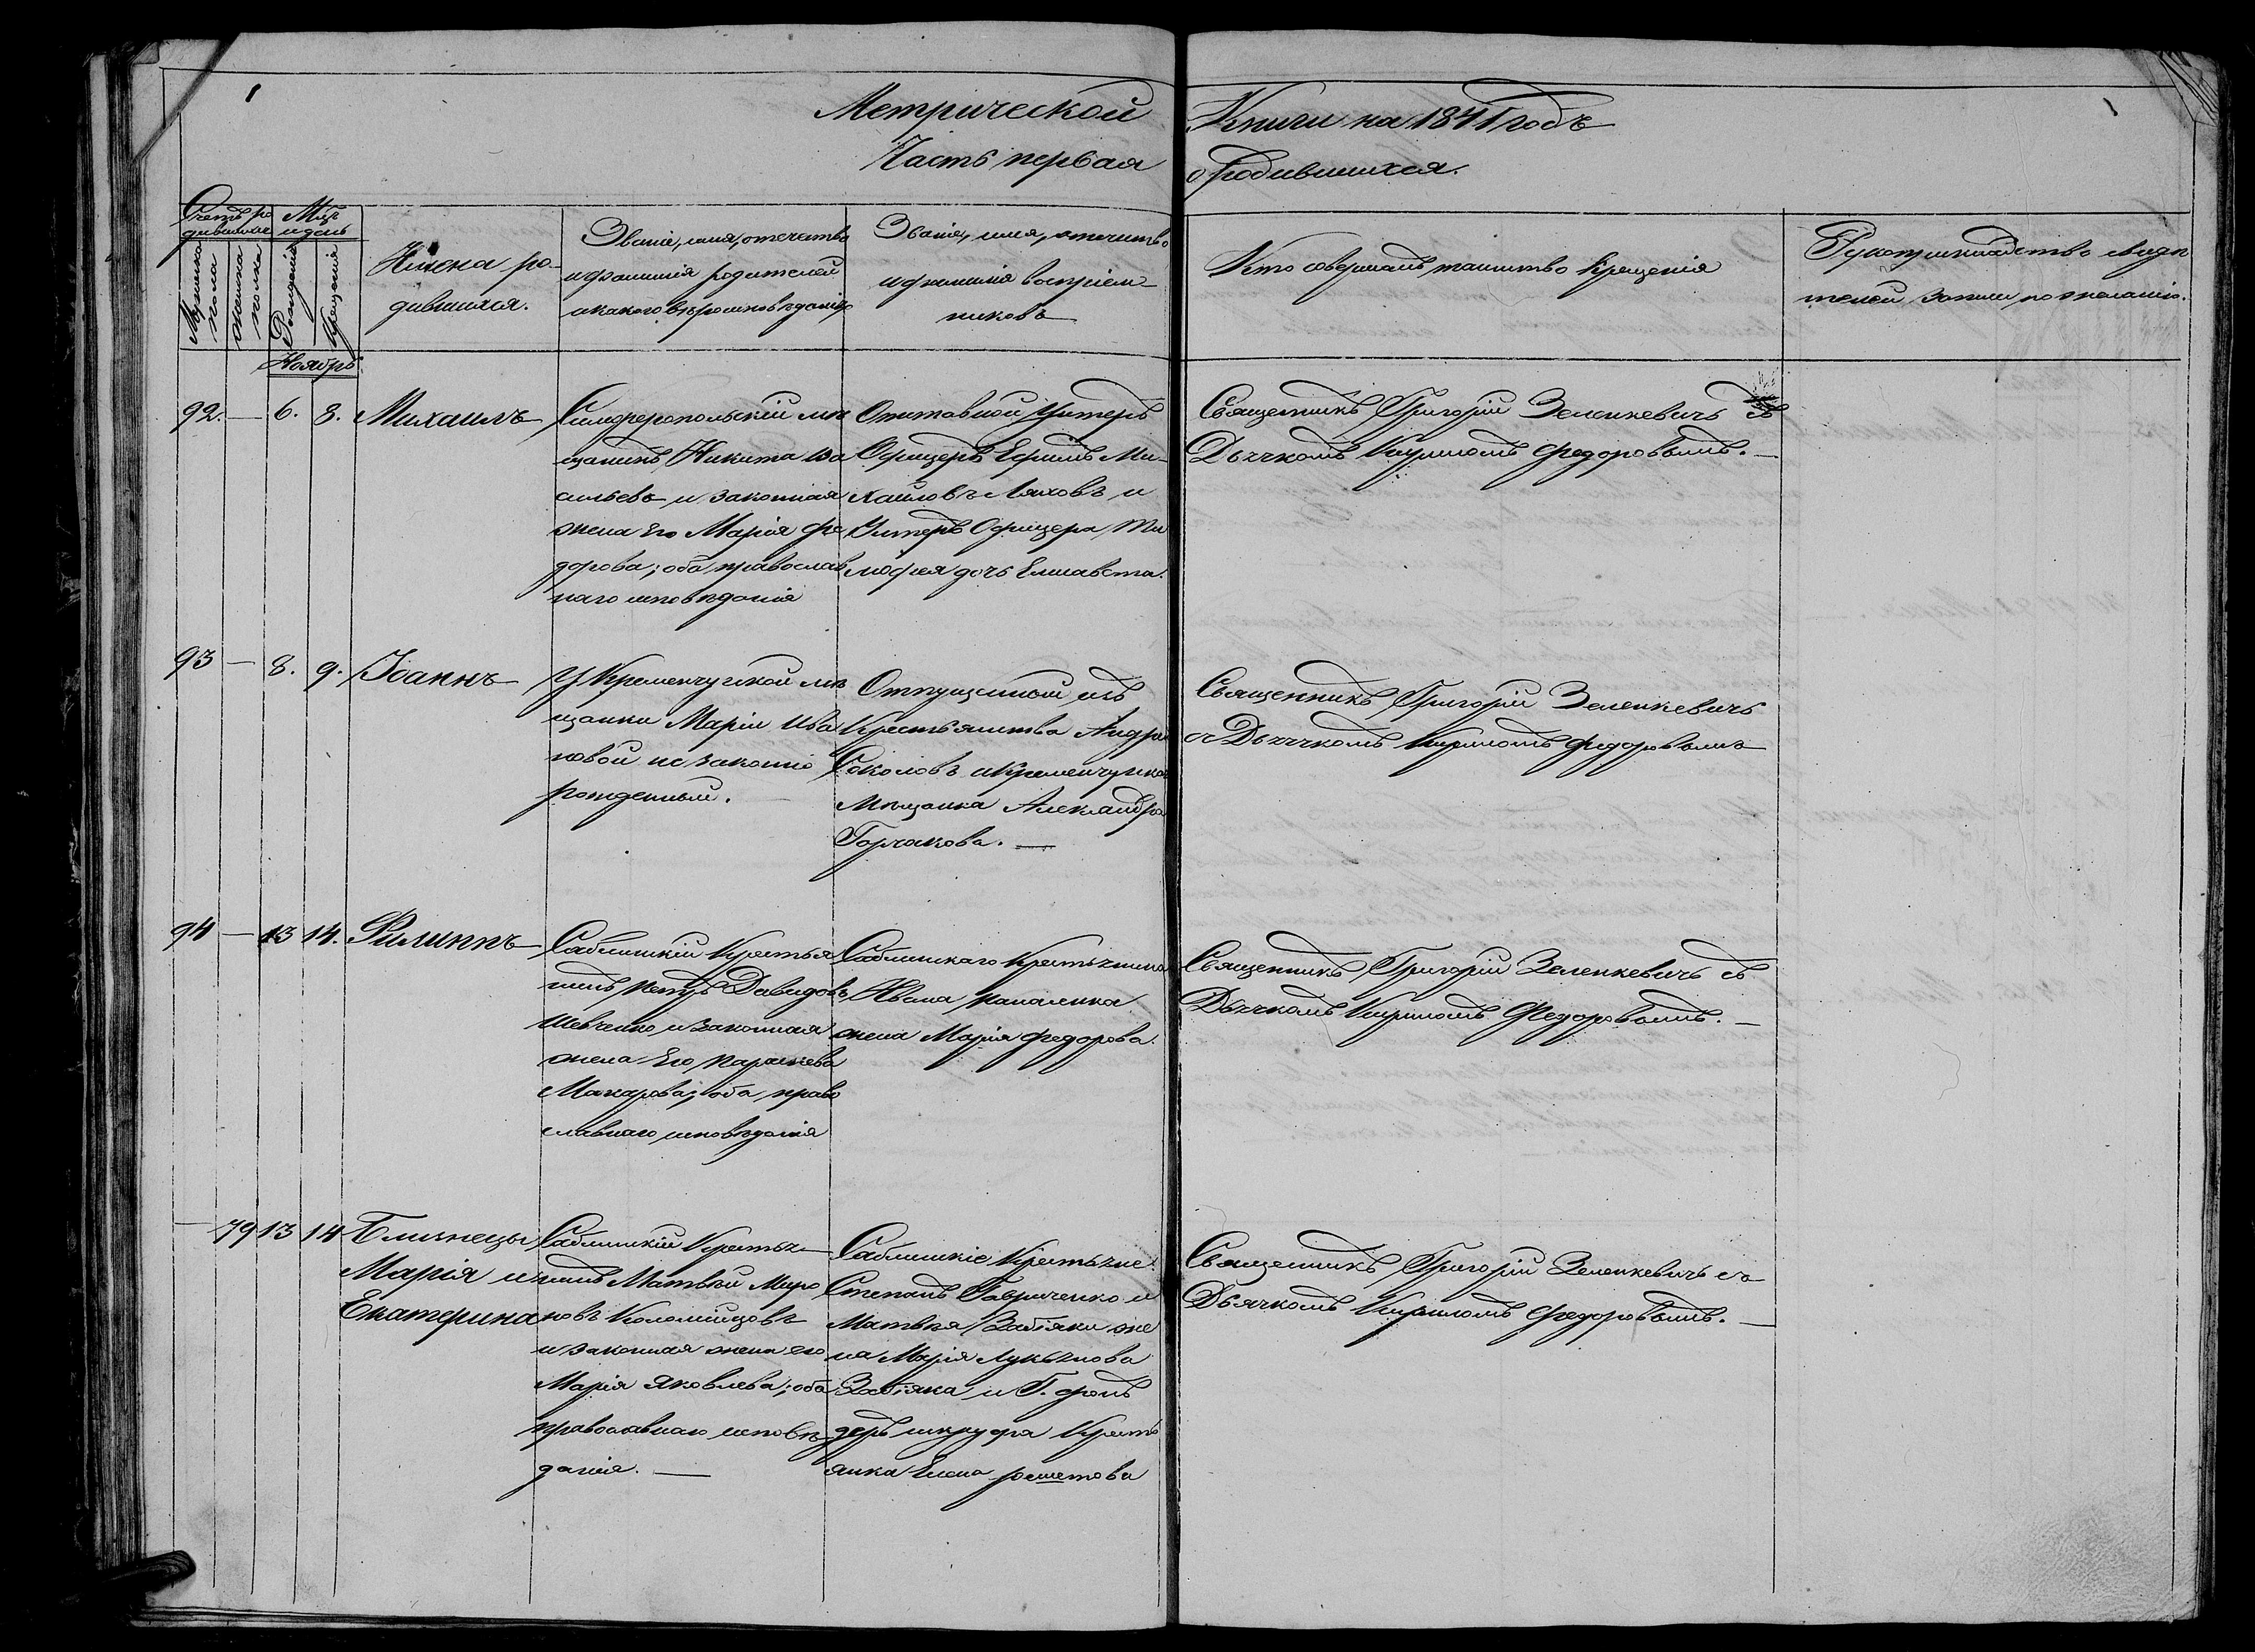 Метрической Книги на 1841 годъ
Часть первая о родившихся.
Счетъ ро
дившихся
Мужеска
пола
женска
пола
Мцъ
и день
Рожденія
Крещенія
Имена ро-
дившихся.
Званіе, имя, отечество
и фамилія родителей
и какого вѣроисповѣданія
Званіе, имя, отчество
и фамилія воспріем-
никовъ
Кто совершалъ таинство Крещенія
Рукоприкладство свидѣ
телей записи по желанію.
Ноябрь
92. — 6. 8. Михаилъ
Симферопольскій мѣ
щанинъ Никита Ва
сильевъ и законная
жена Его Марія Фе
дорова; оба православ
наго исповѣданія
Отставной Унтеръ
Офицеръ Ефимъ Ми-
хайловъ Ляховъ и
Унтеръ Офицера Ти
мофея дочь Елисавета.
Священникъ Григорій Зеленкевичъ съ
Дьячкомъ Кириломъ Федоровымъ. —
93 — 8. 9. Іоаннъ
У Кременчугской мѣ
щанки Маріи Ива
новой незаконно
рожденный.
Отпущенный изъ
Крестьянства Андрей
Соколовъ и Кременчугская
Мѣщанка Александра
Горчакова. —
Священникъ Григорій Зеленкевичъ
съ Дьячкомъ Кириломъ Федоровымъ
94 — 13 14. Филиппъ
Саблинскій Крестья
нинъ Петръ Давидовъ
Шевченко и законная
жена Его Параскева
Макарова; оба право
славнаго исповѣданія
Саблинскаго Крестьянина
Ивана
жена Марія Федорова.
Священникъ Григорій Зеленкевичъ съ
Дьячкомъ Кириломъ Федоровымъ. —
— 79 13 14 Близнецы
Марія и
Екатерина
Саблинскій Крестья
нинъ Матвѣй Миро
новъ Коломійцовъ
и законная жена его
Марія Яковлева; оба
православнаго исповѣ
данія. —
Саблинскіе Крестьяне:
Степанъ Гавриченко и
Матвѣя Забіяки же
на Марія Лукьянова
Забіяка и Г. фонъ
деръ шкруфа Кресть
янка Елена решетова
Священникъ Григорій Зеленкевичъ съ
Дьячкомъ Кириломъ Федоровымъ. —